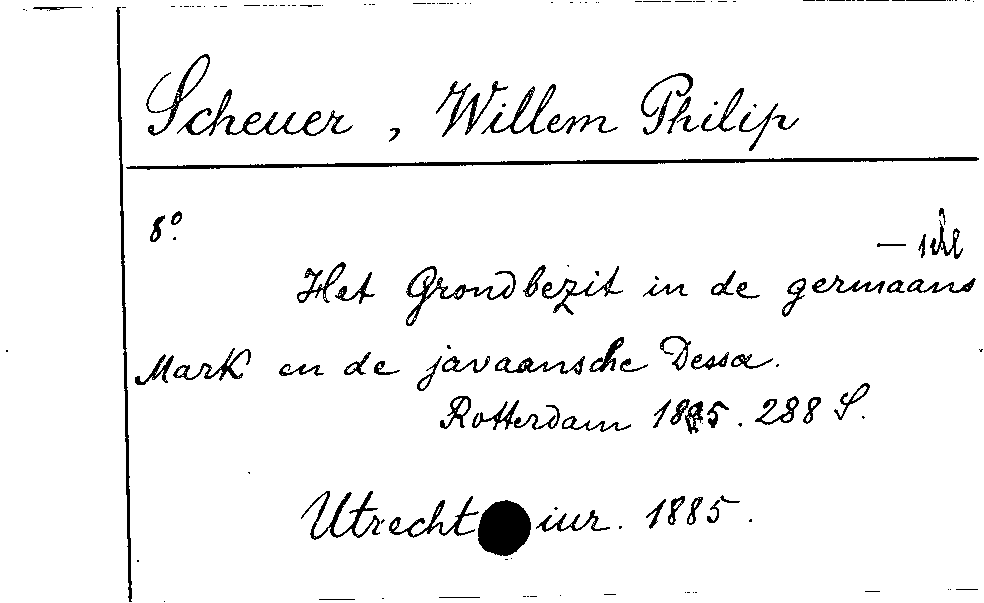 Scheuer, Willem Philip
8°.
— sche
Het Grondbezit in de germaans
Mark en de javaansche Dessa.
Rotterdam 1885. 288 S.
Utrecht iur. 1885.